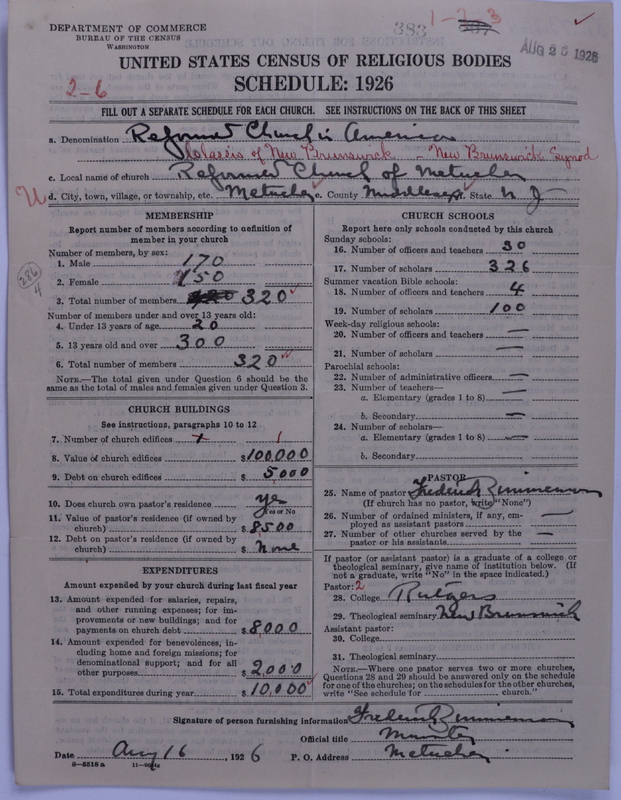 DEPARTMENT OF COMMERCE
BUREAU OF THE CENSUS
WASHINGTON
383
1-2-3
AUG 26 1926
UNITED STATES CENSUS OF RELIGIOUS BODIES
SCHEDULE: 1926
2-6
FILL OUT A SEPARATE SCHEDULE FOR EACH CHURCH. SEE INSTRUCTIONS ON THE BACK OF THIS SHEET
a. Denomination Reformed Church in America
Classis of New Brunswick - New Brunswick Synod
c. Local name of church Reformed Church of Metuchen
U d. City, town, village, or township, etc. Metuchen e. County Middlesex State N J
MEMBERSHIP
Report number of members according to definition of
member in your church
Number of members, by sex:
1. Male 170
2. Female 150
3. Total number of members 320
286
4
Number of members under and over 13 years old:
4. Under 13 years of age 20
5. 13 years old and over 300
6. Total number of members 320
NOTE.—The total given under Question 6 should be the
same as the total of males and females given under Question 3.
CHURCH BUILDINGS
See instructions, paragraphs 10 to 12
7. Number of church edifices 1
8. Value of church edifices $100,000
9. Debt on church edifices $5,000
10. Does church own pastor's residence yes
Yes or No
11. Value of pastor's residence (if owned by
church) $8500
12. Debt on pastor's residence (if owned by
church) $None
EXPENDITURES
Amount expended by your church during last fiscal year
13. Amount expended for salaries, repairs,
and other running expenses; for im-
provements or new buildings; and for
payments on church debt $8000
14. Amount expended for benevolences, in-
cluding home and foreign missions; for
denominational support; and for all
other purposes $2,000
15. Total expenditures during year $10,000
CHURCH SCHOOLS
Report here only schools conducted by this church
Sunday schools:
16. Number of officers and teachers 30
17. Number of scholars 326
Summer vacation Bible schools:
18. Number of officers and teachers 4
19. Number of scholars 100
Week-day religious schools:
20. Number of officers and teachers —
21. Number of scholars —
Parochial schools:
22. Number of administrative officers —
23. Number of teachers—
a. Elementary (grades 1 to 8) —
b. Secondary —
24. Number of scholars—
a. Elementary (grades 1 to 8) —
b. Secondary
PASTOR
25. Name of pastor Frederick Zimmerman
(If church has no pastor, write "None")
26. Number of ordained ministers, if any, em-
ployed as assistant pastors —
27. Number of other churches served by the
pastor or his assistants —
If pastor (or assistant pastor) is a graduate of a college or
theological seminary, give name of institution below. (If
not a graduate, write "No" in the space indicated.)
Pastor: 2
28. College Rutgers
29. Theological seminary New Brunswick
Assistant pastor:
30. College
31. Theological seminary
NOTE.—Where one pastor serves two or more churches,
Questions 28 and 29 should be answered only on the schedule
for one of the churches; on the schedules for the other churches,
write "See schedule for church."
Signature of person furnishing information Frederick Zimmerman
Official title Minister
Date Aug 16, 1926 P. O. Address Metuchen
8-5518 a